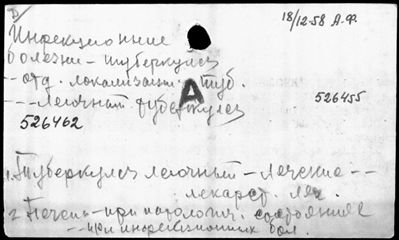 18/12-58 А.Ф.
Инфекционные
болезни - туберкулез
-- отд. локализации туб.
--- Легочный туберкулез
А
526455
526462
1. Туберкулез легочный - лечение --
лекарст. леч.
2 Печень - при патологич. состояниях
-- при инфекционных бол.